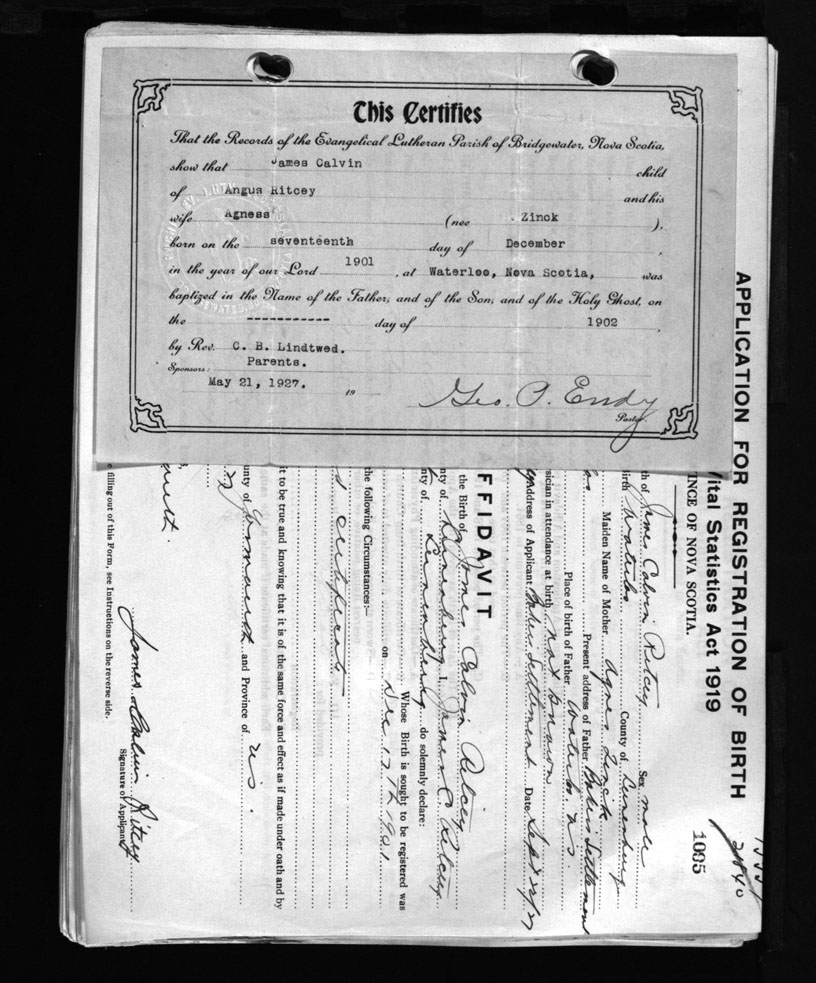 This Certifies
That the Records of the Evangelical Lutheran Parish of Bridgewater, Nova Scotia,
show that James Calvin child
of Angus Ritcey and his
wife Agness (nee Zinck ),
born on the seventeenth day of December ,
in the year of our Lord 1901 , at Waterloo, Nova Scotia, was
baptized in the Name of the Father, and of the Son, and of the Holy Ghost, on
the ----------- day of 1902 ,
by Rev. C. B. Lindtwed.
Sponsors: Parents.
May 21, 1927. 19
Geo. P. Endy
Pastor.
APPLICATION FOR REGISTRATION OF BIRTH
Vital Statistics Act 1919
INCE OF NOVA SCOTIA.
1005
2840
th of James Calvin Ritcey Sex male
Birth Waterloo County of Lunenburg
Maiden Name of Mother Agnes Zinck
Present address of Father Bakers Settlement
Place of birth of Father Waterloo N.S.
ysician in attendance at birth not known
Address of Applicant Bakers Settlement Date Sept
FFIDAVIT
the Birth of James Calvin Ritcey
nty of Lunenburg I, James C Ritcey
nty of Lunenburg do solemnly declare:
Whose Birth is sought to be registered was
on Dec 17th 1901
the following Circumstances:—
it to be true and knowing that it is of the same force and effect as if made under oath and by
unty of and Province of N.S.
James Calvin Ritcey
Signature of Applicant
e filling out of this Form, see Instructions on the reverse side.